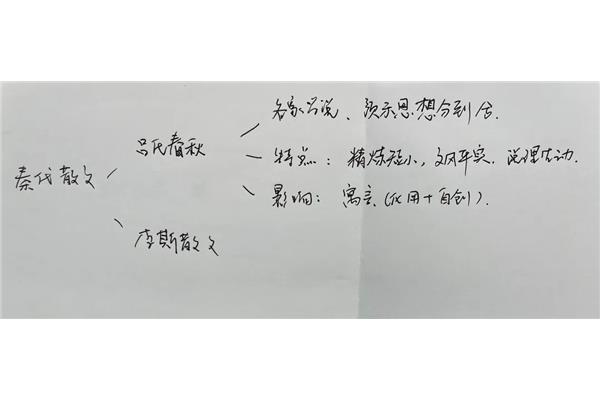 各家学说、预示思想分到
吕氏春秋
特点：精炼短小，文风平实，说理生动.
秦代散文
影响：寓言(化用+自创).
李斯散文